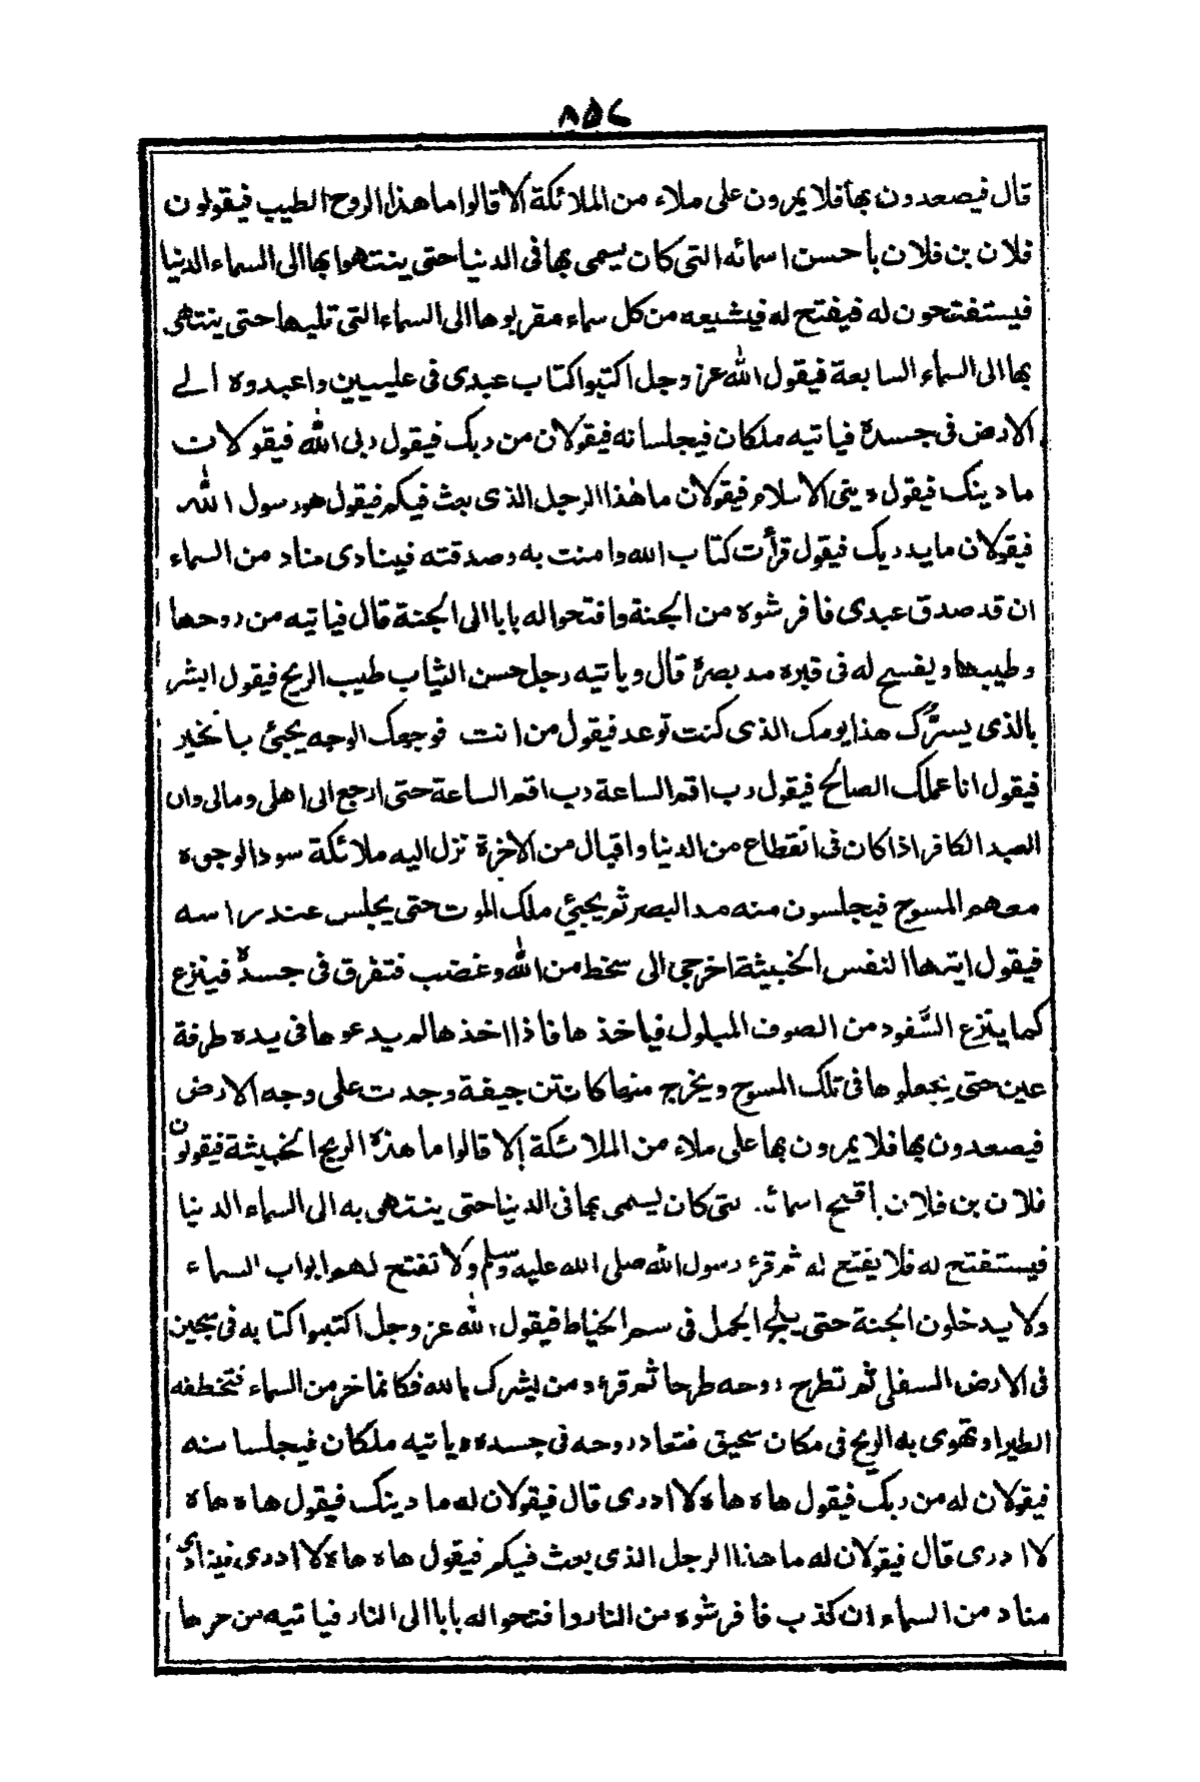 ٨٥٧
قال فيصعدون بها فلا يمرون على ملاء من الملائكة الا قالوا ما هذا الروح الطيب فيقولون
فلان بن فلان بأحسن اسمائه التى كان يسمى بها فى الدنيا حتى ينتهوا بها الى السماء الدنيا
فيستفتحون له فيفتح له فيشيعه من كل سماء مقربوها الى السماء التى تليها حتى ينتهى
بها الى السماء السابعة فيقول الله عز وجل اكتبوا كتاب عبدى فى عليين واعيدوه الے
الارض فى جسده فياتيه ملكان فيجلسانه فيقولان من ربك فيقول ربى الله فيقولان
ما دينك فيقول دينى الاسلام فيقولان ما هذا الرجل الذى بعث فيكم فيقول هو رسول الله
فيقولان ما يدريك فيقول قرأت كتاب الله وامنت به وصدقته فينادى مناد من السماء
ان قد صدق عبدى فافرشوه من الجنة وافتحوا له بابا الى الجنة قال فياتيه من روحها
وطيبها ويفسح له فى قبره مد بصره قال ويأتيه رجل حسن الثياب طيب الريح فيقول ابشر
بالذى يسرُّك هذا يومك الذى كنت توعد فيقول من انت فوجهك الوجه يجئ بالخير
فيقول انا عملك الصالح فيقول رب اقم الساعة رب اقم الساعة حتى ارجع الى اهلى ومالى وان
العبد الكافر اذا كان فى انقطاع من الدنيا واقبال من الاخرة نزل اليه ملائكة سود الوجوه
معهم المسوح فيجلسون منه مد البصر ثم يجيئ ملك الموت حتى يجلس عند راسه
فيقول ايتها النفس الخبيثة اخرجى الى سخط من الله وغضب فتفرق فى جسده فينزع
كما ينزع السَّفود من الصوف المبلول فياخذها فاذا اخذها لم يدعوها فى يده طرفة
عين حتى يجعلوها فى تلك المسوح ويخرج منها كانتن جيفة وجدت على وجه الارض
فيصعدون بها فلا يمرون بها على ملاء من الملائكة إلا قالوا ما هذه الريح الخبيثة فيقولون
فلان بن فلان بأقبح اسمائه التى كان يسمى بها فى الدنيا حتى ينتهى به الى السماء الدنيا
فيستفتح له فلا يفتح له ثم قرء رسول الله صلى الله عليه وسلم ولا تفتح لهم ابواب السماء
ولا يدخلون الجنة حتى يلج الجمل فى سم الخياط فيقول الله عز وجل اكتبوا كتابه فى سجين
فى الارض السفلى ثم تطرح روحه طرحا ثم قرء ومن يشرك بالله فكانما خر من السماء فتخطفه
الطير او تهوى به الريح فى مكان سحيق فتعاد روحه فى جسده وياتيه ملكان فيجلسانه
فيقولان له من ربك فيقول هاه هاه لا ادرى قال فيقولان له ما دينك فيقول هاه هاه
لا ادرى قال فيقولان له ما هذا الرجل الذى بعث فيكم فيقول هاه هاه لا ادرى فينادى
مناد من السماء ان كذب فافرشوه من النار وافتحوا له بابا الى النار فياتيه من حرها